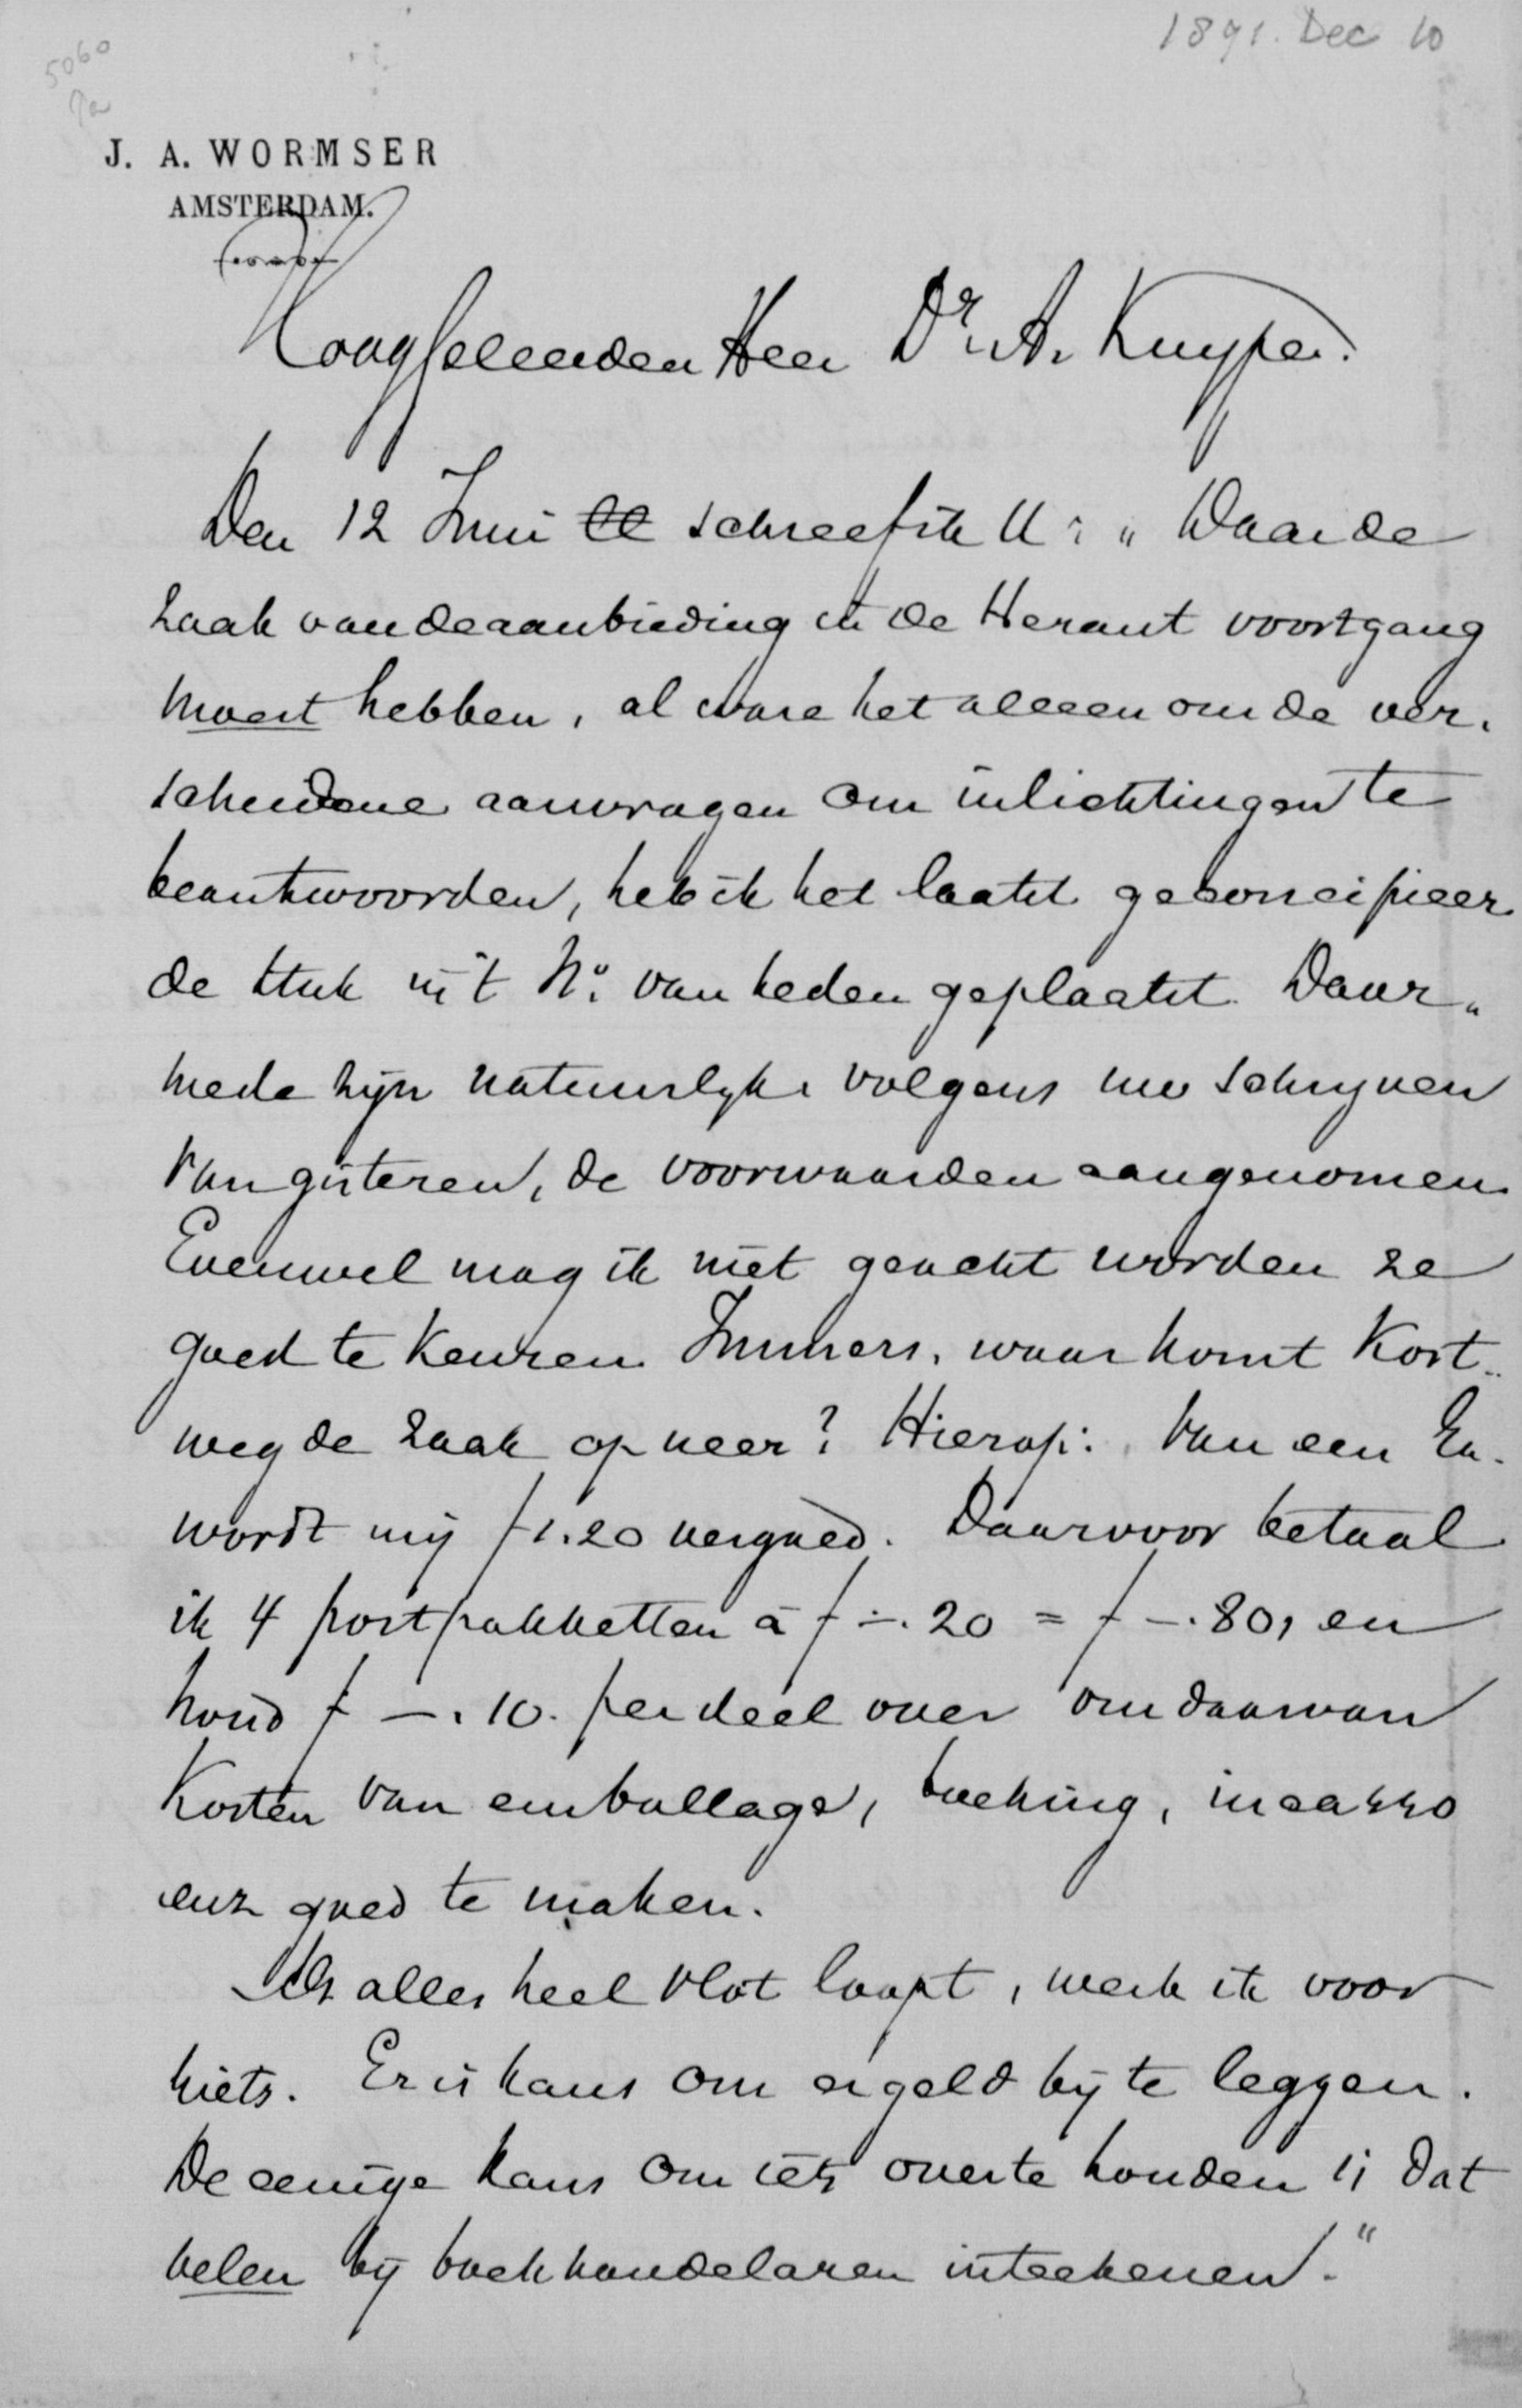 1891. Dec 10
5060
J. A. WORMSER
AMSTERDAM.
Hooggeleerden Heer Dr. A. Kuyper.
Den 12 Juni ll schreef ik U: „Daar de
zaak van de aanbieding in de Heraut voortgang
moest hebben, al ware het alleen om de ver-
scheidene aanvragen om inlichtingen te
beantwoorden, heb ik het laatst geconcipieer
de stuk in 't No. van heden geplaatst. Daar„
mede zijn natuurlijk volgens uw schrijven
van gisteren, de voorwaarden aangenomen.
Evenwel mag ik niet geacht worden ze
goed te keuren. Immers, waar komt kort„
weg de zaak op neer? Hierop: Van een Ex.
wordt mij f 1.20 vergoed. Daarvoor betaal
ik 4 postpakketten à f -. 20 = f -. 80, en
houd f -. 10. per deel over om daarvan
kosten van emballage, boeking, incasso
enz goed te maken.
Als alles heel vlot loopt, werk ik voor
niets. Er is kans om er geld bij te leggen.
De eenige kans om iets over te houden is dat
velen bij boekhandelaren inteekenen."